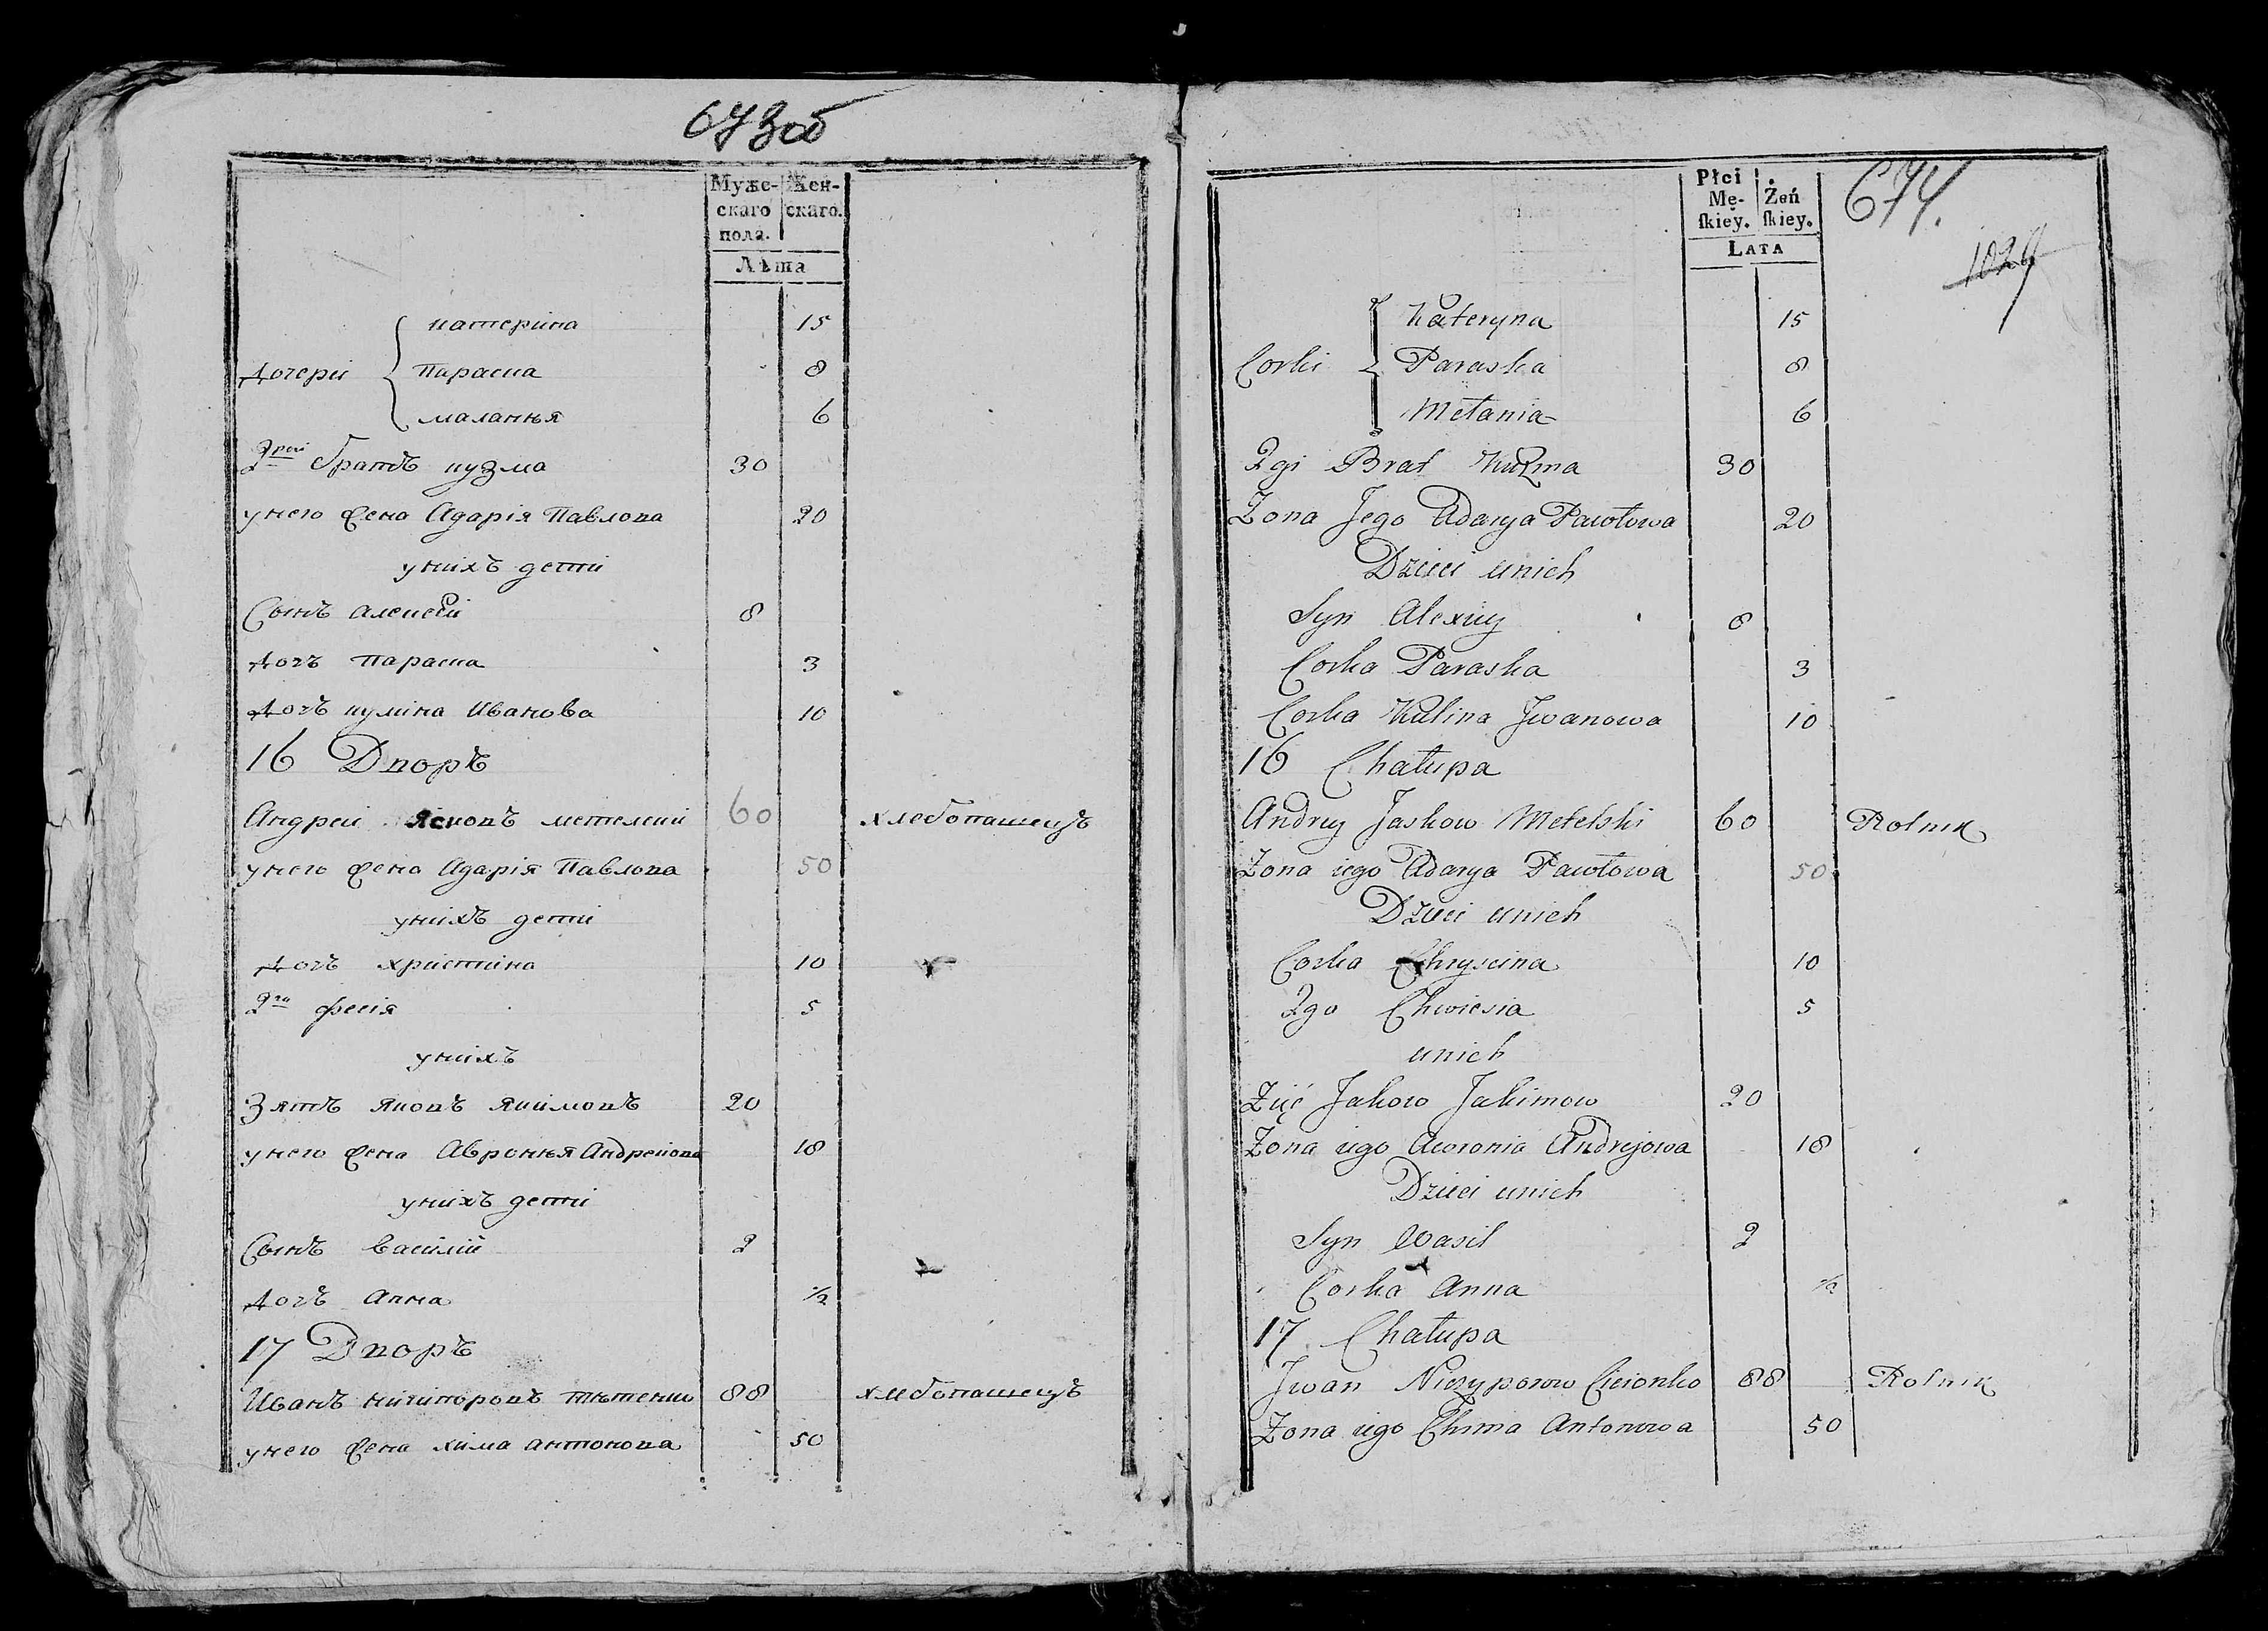 673об
Муже- Жен-
скаго скаго.
пола.
Лѣта
катерина 15
Дочери параска 8
маланья 6
2рей братъ кузма 30
унего жена Адарія Павлова 20
унихъ дети
Сынъ алексей 8
дочъ параска 3
дочъ кулина Иванова 10
16 Дворъ
Андрей Ясковъ метелкии 60 хлебопашецъ
унего жена Адарія Павлова 50
унихъ дети
дочъ христина 10
2га фесія 5
унихъ
Зятъ яковъ якимовъ 20
унего жена Авронья Андреиова 18
унихъ дети
Сынъ василіи 2
дочъ анна ½
17 Дворъ
Иванъ ничипоровъ тѣтенко 88 хлебопашецъ
унего жена хима антонова 50
Płci
Mę- Żeń
skiey. skiey.
LATA
674.
1029
Kateryna 15
Corki Paraska 8
Mełania 6
2gi Brat Kuzma 30
Zona Jego Adarya Pawłowa 20
Dzieci unich
Syn Alexiey 8
Corka Paraska 3
Corka Kulina Jwanowa 10
16 Chałupa
Andrey Jaskow Metelski 60 Rolnik
Zona iego Adarya Pawłowa 50
Dzieci unich
Corka Chryscina 10
2go Chwiesia 5
unich
Zięć Jakow Jakimow 20
Zona iego Awronia Andrejowa 18
Dzieci unich
Syn Wasil 2
Corka Anna ½
17 Chałupa
Jwan Niczyporow Cicionko 88 Rolnik
Zona iego Chima Antonowa 50